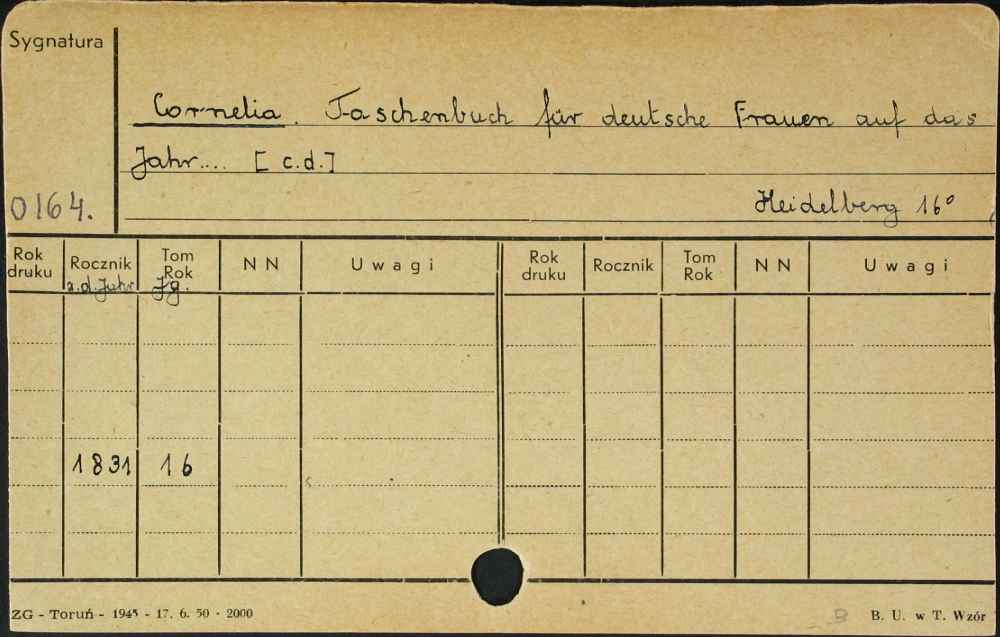 Sygnatura
Cornelia. Taschenbuch für deutsche Frauen auf das
Jahr.... [c.d.]
0164.
Heidelberg 16°
Rok druku Rocznik Tom Rok NN Uwagi Rok druku Rocznik Tom Rok NN Uwagi
a.d. Jahr Jg.
1831 16
ZG - Toruń - 1945 - 17. 6. 50 - 2000
B. U. w T. Wzór